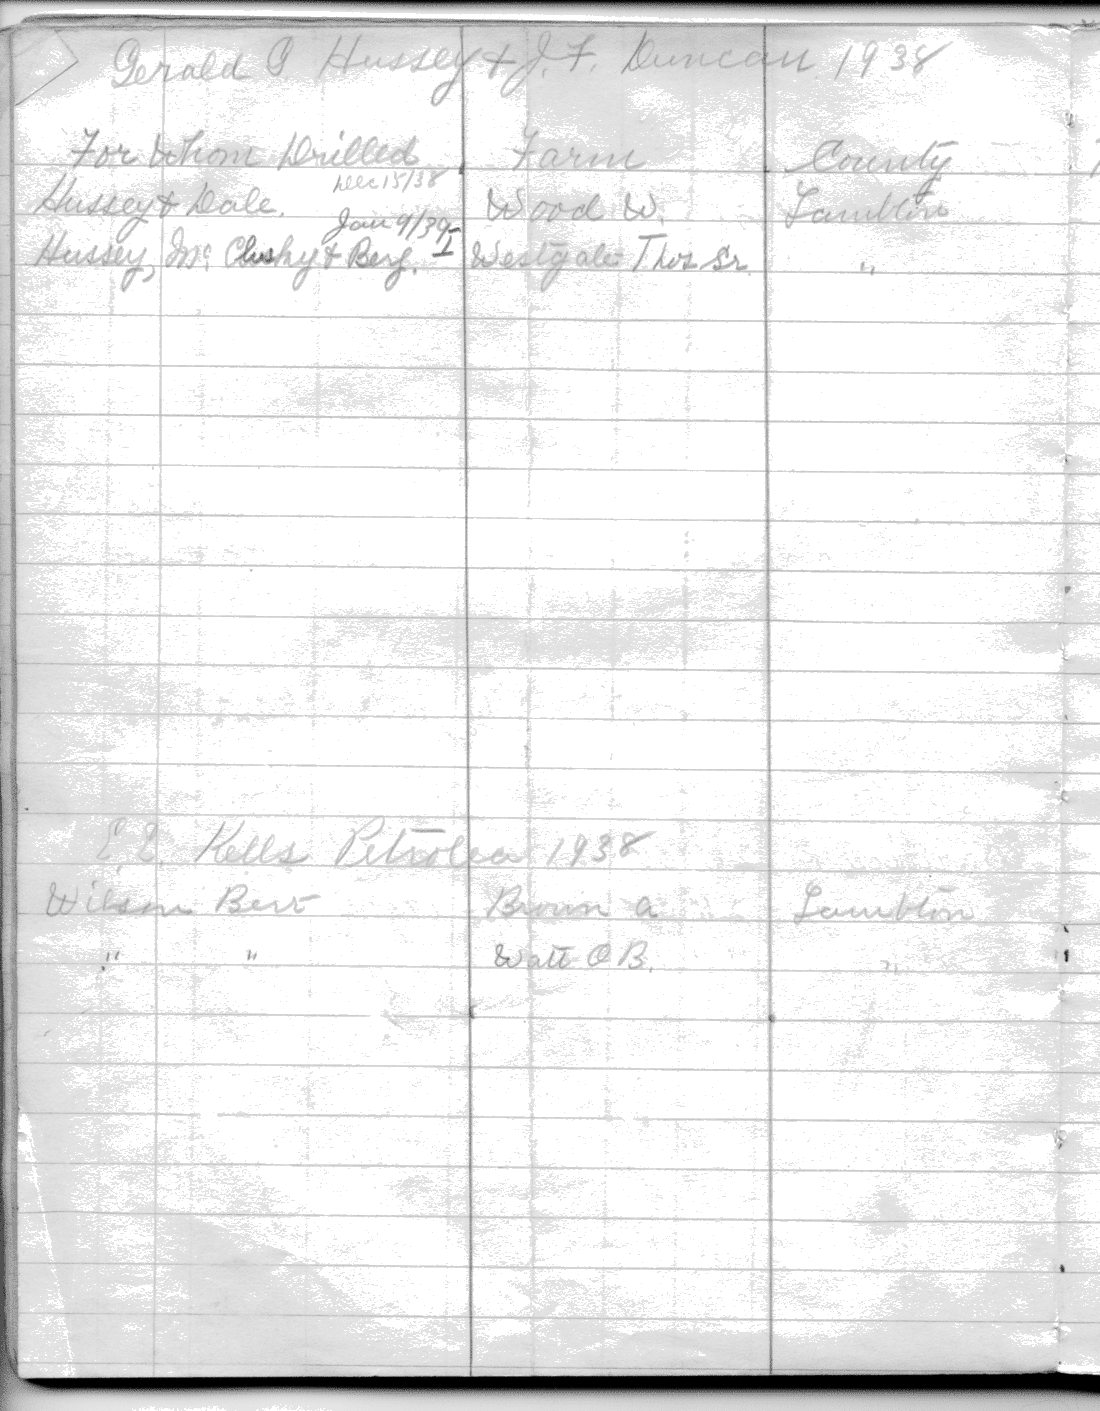 Gerald C Hussey & J. F. Duncan 1938
For Whom Drilled Farm County
Dec 15/38
Hussey & Dale. Wood W. Lambton
Jan 9/39
Hussey, Mc Clusky & Berg. I Westgate Thos Sr. "
E. E. Kells Petrolea 1938
Wilson Bert Brown A Lambton
" " Watt O B. "